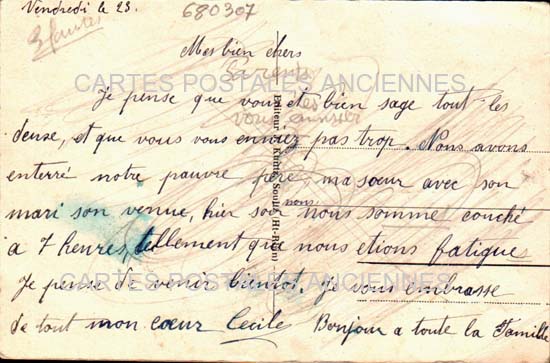 Vendredi le 23.
680307
3 fautes
Mes bien chers
CARTES POSTALES ANCIENNES
Je pense que vous et bien sage tout les
deuse, et que vous vous enuiez pas trop. Nous avons
enterré notre pauvre frère, ma sœur avec son
mari son venue, hier soir nous nous somme couché
a 7 heures, tellement que nous etions fatigue
CARTES POSTALES ANCIENNES
Je pense de venir bientot. Je vous embrasse
de tout mon coeur Cecile Bonjour a toute la Famille
Editeur Kuhn, Soultz (Ht-Rhin)